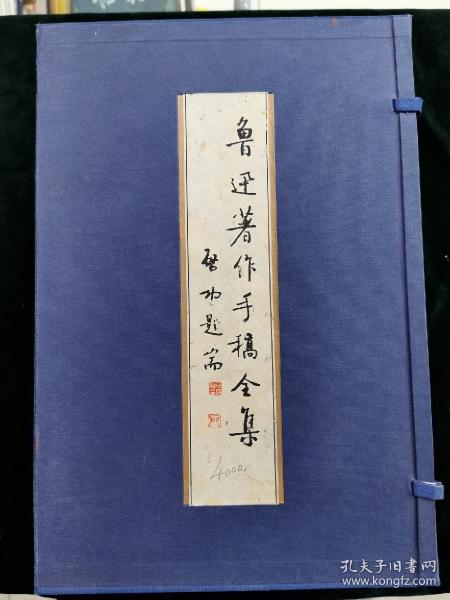 鲁迅著作手稿全集
启功题耑
4000
孔夫子旧书网
www.kongfz.com